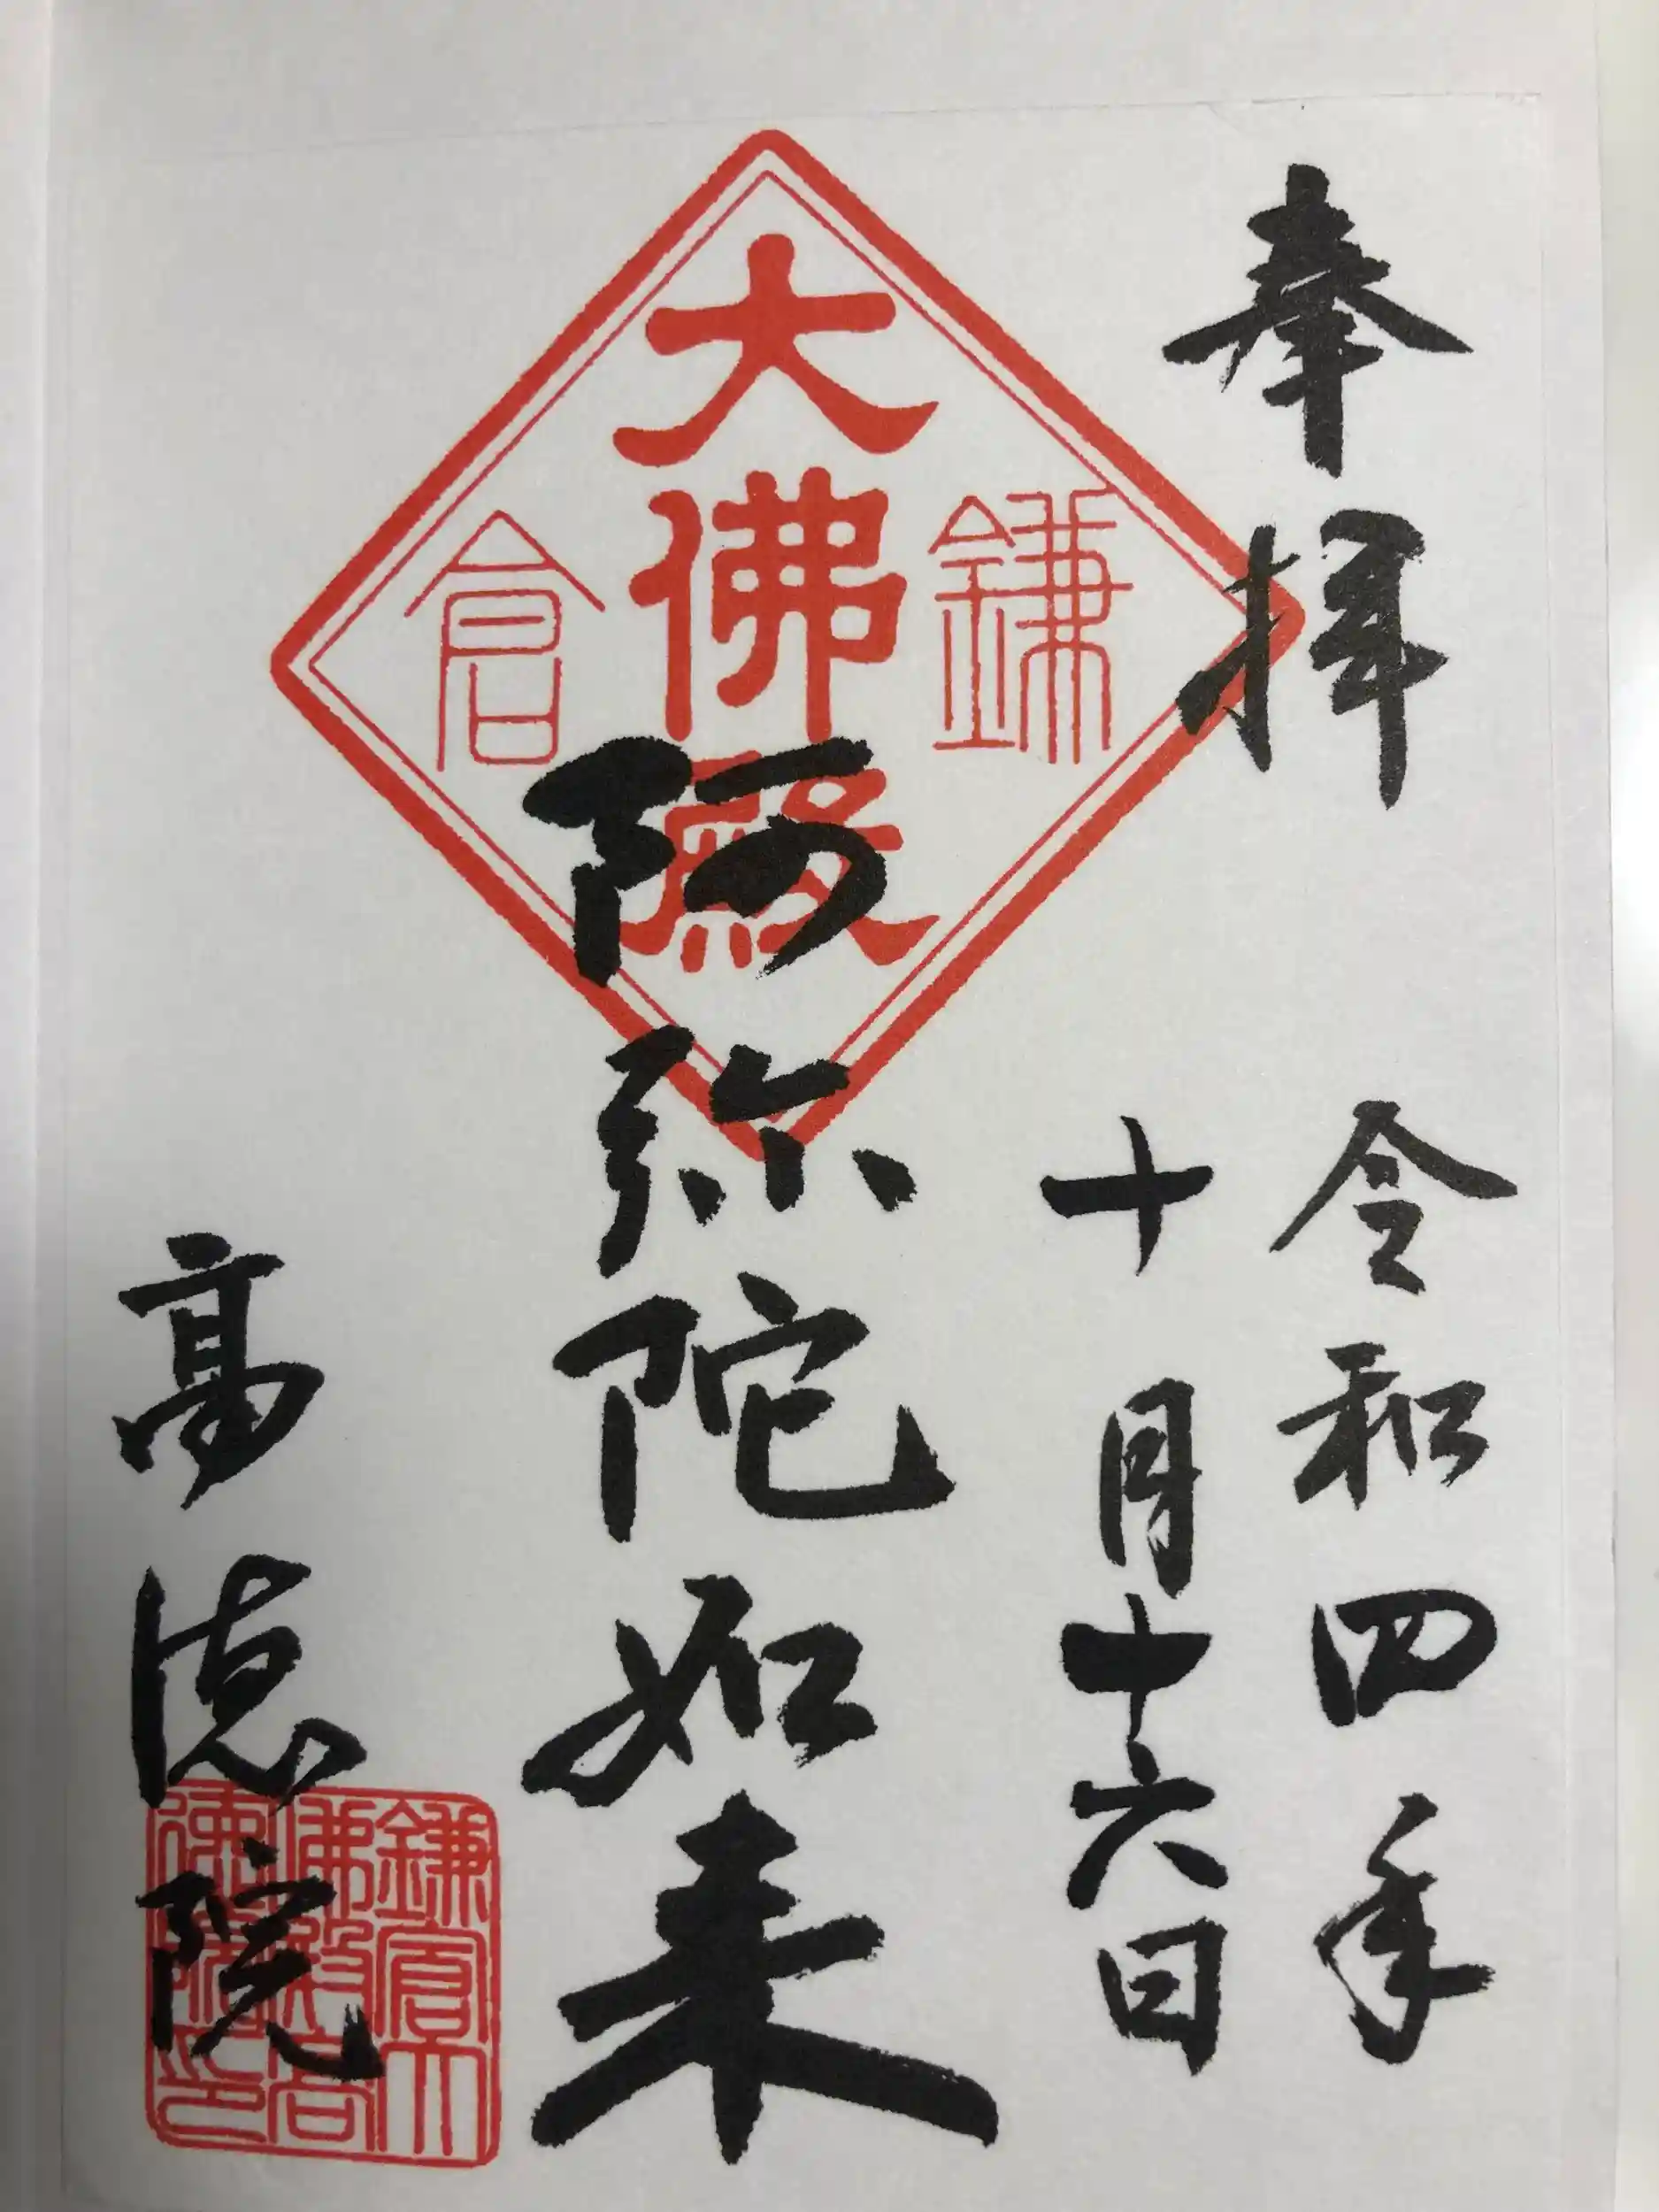 奉拝
令和四年
十月十六日
鎌倉
大佛殿
阿弥陀如来
高徳院
鎌倉大佛殿高徳院印